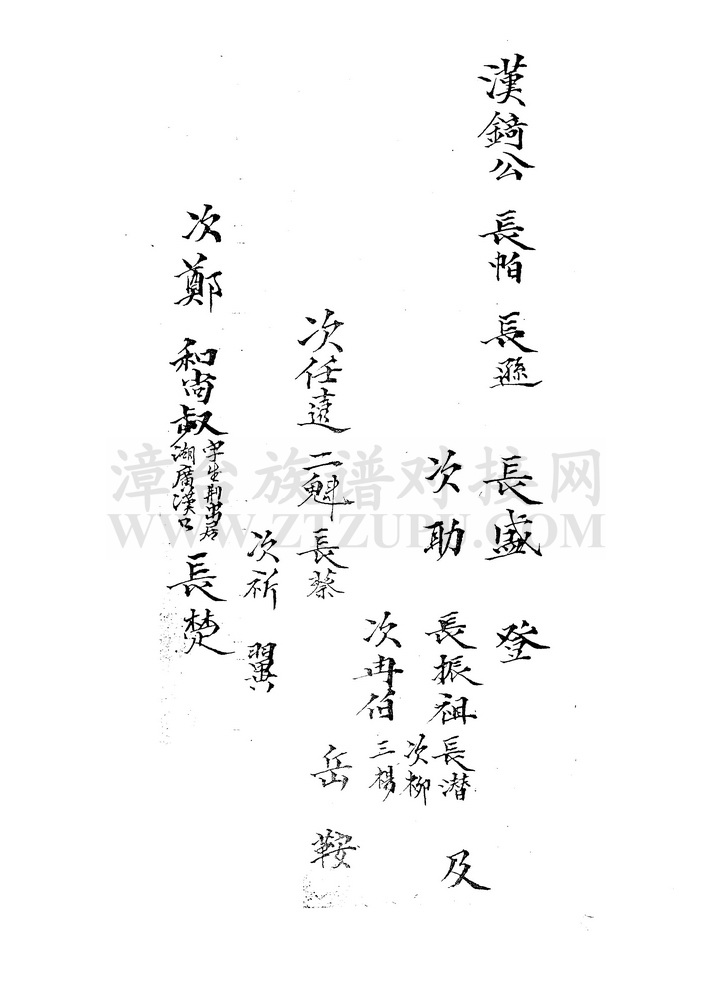 漢錡公 長帕 長遜 長盛 登
次助 長振祖 長潜 及
次柳
次冉伯 三楊
次任遠 二魁 長蔡 岳 鞍
次祈 翼
次鄭 和尚叔 字生荆出居 湖廣漢口 長楚
漳台族谱对接网
WWW.ZTZUPU.COM